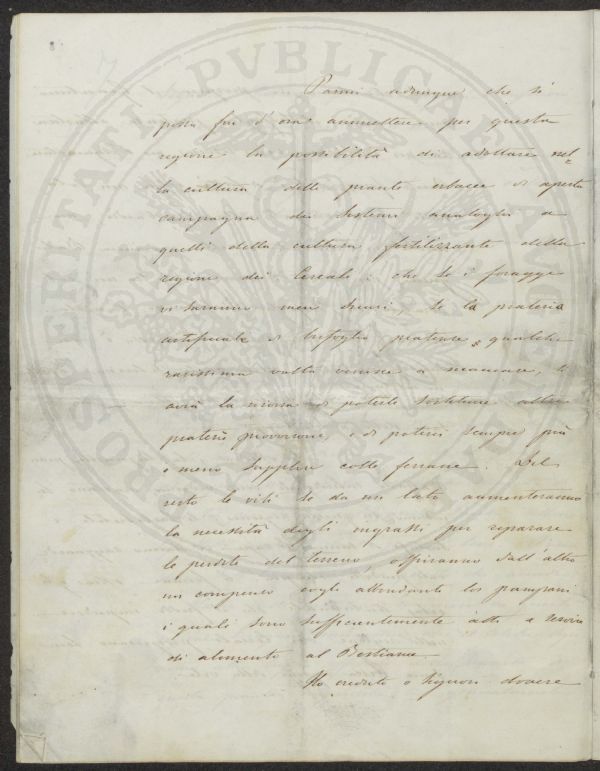 Parmi adunque che si
possa fin d'ora ammettere per questa
regione la possibilità di adottare nel
la cultura delle piante erbacee di aperta
campagna dei sistemi analoghi a
quelli della cultura fertilizzante della
regione dei Cereali: che se i foraggi
vi saranno men sicuri, se la prateria
artificiale di trifoglio pratense qualche
rarissima volta venisse a mancare, si
avrà la risorsa di poterle sostituire altre
praterie provvisorie, e di potervi sempre più
o meno supplire colle ferrane. Del
resto le viti se da un lato aumenteranno
la necessità degli ingrassi per riparare
le perdite del terreno, offriranno dall'altro
un compenso cogli abbondanti loro pampani
i quali sono sufficientemente atti a servire
di alimento al Bestiame.
Ho creduto o Signori dovere
PVBLICAE
PROSPERITATI